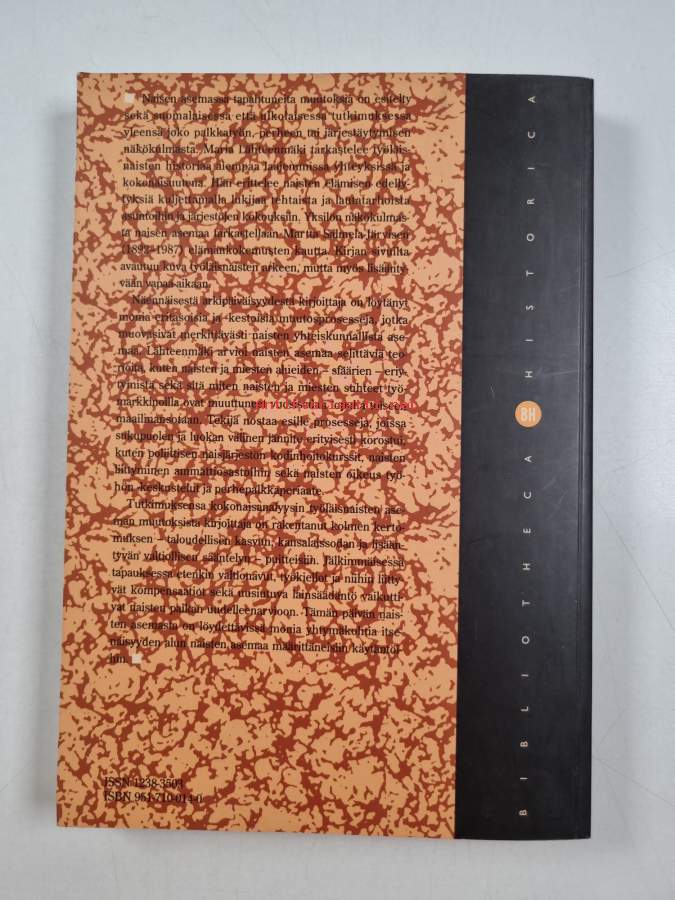 Naisen asemassa tapahtuneita muutoksia on esitelty
sekä suomalaisessa että ulkolaisessa tutkimuksessa
yleensä joko palkkatyön, perheen tai järjestäytymisen
näkökulmasta. Maria Lähteenmäki tarkastelee työläis-
naisten historiaa aiempaa laajemmissa yhteyksissä ja
kokonaisuutena. Hän erittelee naisten elämisen edelly-
tyksiä kuljettamalla lukijaa tehtaista ja hautatarhoista
asuntoihin ja järjestöjen kokouksiin. Yksilön näkökulmas-
ta naisen asemaa tarkastellaan Martta Salmela-Järvisen
(1892–1987) elämänkokemusten kautta. Kirjan sivuilta
avautuu kuva työläisnaisten arkeen, mutta myös lisäänty-
vään vapaa-aikaan.
Näennäisestä arkipäiväisyydestä kirjoittaja on löytänyt
monia eritasoisia ja -kestoisia muutosprosesseja, jotka
muovasivat merkittävästi naisten yhteiskunnallista ase-
maa. Lähteenmäki arvioi naisten asemaa selittäviä teo-
rioita, kuten naisten ja miesten alueiden – sfäärien – eriy-
tymistä sekä sitä miten naisten ja miesten suhteet työ-
markkinoilla ovat muuttuneet vuosisadan lopulta toiseen
maailmansotaan. Tekijä nostaa esille prosesseja, joissa
sukupuolen ja luokan välinen jännite erityisesti korostui,
kuten poliittisen naisjärjestön kodinhoitokurssit, naisten
liittyminen ammattiosastoihin sekä naisten oikeus työ-
hön -keskustelut ja perhepalkkaperiaate.
Tutkimuksensa kokonaisanalyysin työläisnaisten ase-
man muutoksista kirjoittaja on rakentanut kolmen kerto-
muksen – taloudellisen kasvun, kansalaissodan ja lisään-
tyvän valtiollisen sääntelyn – puitteisiin. Jälkimmäisessä
tapauksessa etenkin valtionavut, työkiellot ja niihin liitty-
vät kompensaatiot sekä uusiutuva lainsäädäntö vaikutti-
vat naisten paikan uudelleenarvioon. Tämän päivän nais-
ten asemasta on löydettävissä monia yhtymäkohtia itse-
näisyyden alun naisten asemaa määrittäneisiin käytäntöi-
hin.
ISSN 1238-3503
ISBN 951-710-014-0
BIBLIOTHECA BH HISTORICA